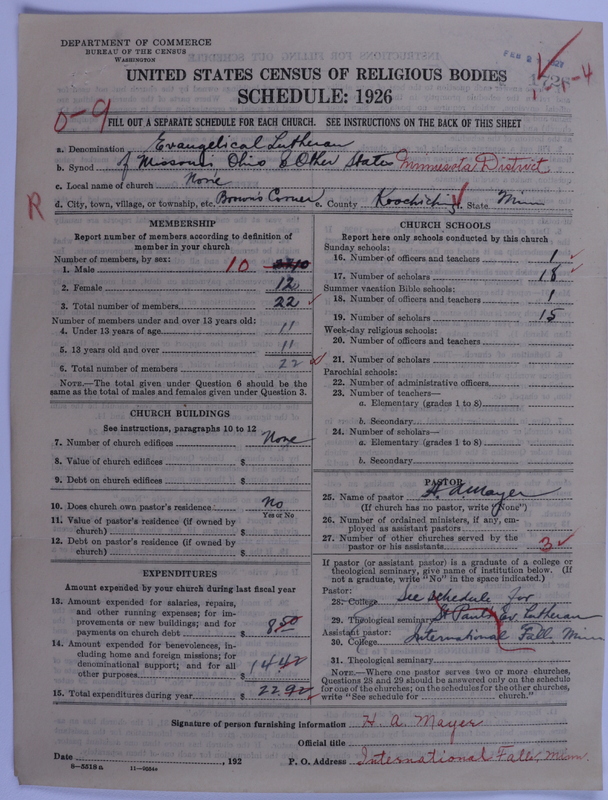 DEPARTMENT OF COMMERCE
BUREAU OF THE CENSUS
WASHINGTON
UNITED STATES CENSUS OF RELIGIOUS BODIES
SCHEDULE: 1926
0-9
FILL OUT A SEPARATE SCHEDULE FOR EACH CHURCH. SEE INSTRUCTIONS ON THE BACK OF THIS SHEET
a. Denomination Evangelical Lutheran
b. Synod of Missouri Ohio & Other States Minnesota District
c. Local name of church None
d. City, town, village, or township, etc. Brown's Corner e. County Koochiching f. State Minn
R
MEMBERSHIP
Report number of members according to definition of
member in your church
Number of members, by sex:
1. Male 10 10
2. Female 12
3. Total number of members 22
Number of members under and over 13 years old:
4. Under 13 years of age 11
5. 13 years old and over 11
6. Total number of members 22
NOTE.—The total given under Question 6 should be
same as the total of males and females given under Question 3.
CHURCH BUILDINGS
See instructions, paragraphs 10 to 12
7. Number of church edifices None
8. Value of church edifices $
9. Debt on church edifices $
10. Does church own pastor's residence No
Yes or No
11. Value of pastor's residence (if owned by
church) $
12. Debt on pastor's residence (if owned by
church) $
EXPENDITURES
Amount expended by your church during last fiscal year
13. Amount expended for salaries, repairs,
and other running expenses; for im-
provements or new buildings; and for
payments on church debt $ 8.50
14. Amount expended for benevolences, in-
cluding home and foreign missions; for
denominational support; and for all
other purposes $ 14.42
15. Total expenditures during year $ 22.92
CHURCH SCHOOLS
Report here only schools conducted by this church
Sunday schools:
16. Number of officers and teachers 1
17. Number of scholars 18
Summer vacation Bible schools:
18. Number of officers and teachers 1
19. Number of scholars 15
Week-day religious schools:
20. Number of officers and teachers
21. Number of scholars
Parochial schools:
22. Number of administrative officers
23. Number of teachers—
a. Elementary (grades 1 to 8)
b. Secondary
24. Number of scholars—
a. Elementary (grades 1 to 8)
b. Secondary
PASTOR
25. Name of pastor H. A. Mayer
(If church has no pastor, write "None")
26. Number of ordained ministers, if any, em-
ployed as assistant pastors
27. Number of other churches served by the
pastor or his assistants 3
If pastor (or assistant pastor) is a graduate of a college or
theological seminary, give name of institution below. (If
not a graduate, write "No" in the space indicated.)
Pastor:
28. College See schedule for
29. Theological seminary St Pauls Ev. Lutheran
Assistant pastor:
30. College International Falls, Minn
31. Theological seminary
NOTE.—Where one pastor serves two or more churches,
Questions 28 and 29 should be answered only on the schedule
for one of the churches; on the schedules for the other churches,
write "See schedule for church."
Signature of person furnishing information H. A. Mayer
Official title
Date , 192 P. O. Address International Falls, Minn.
8-5518a 11-9554